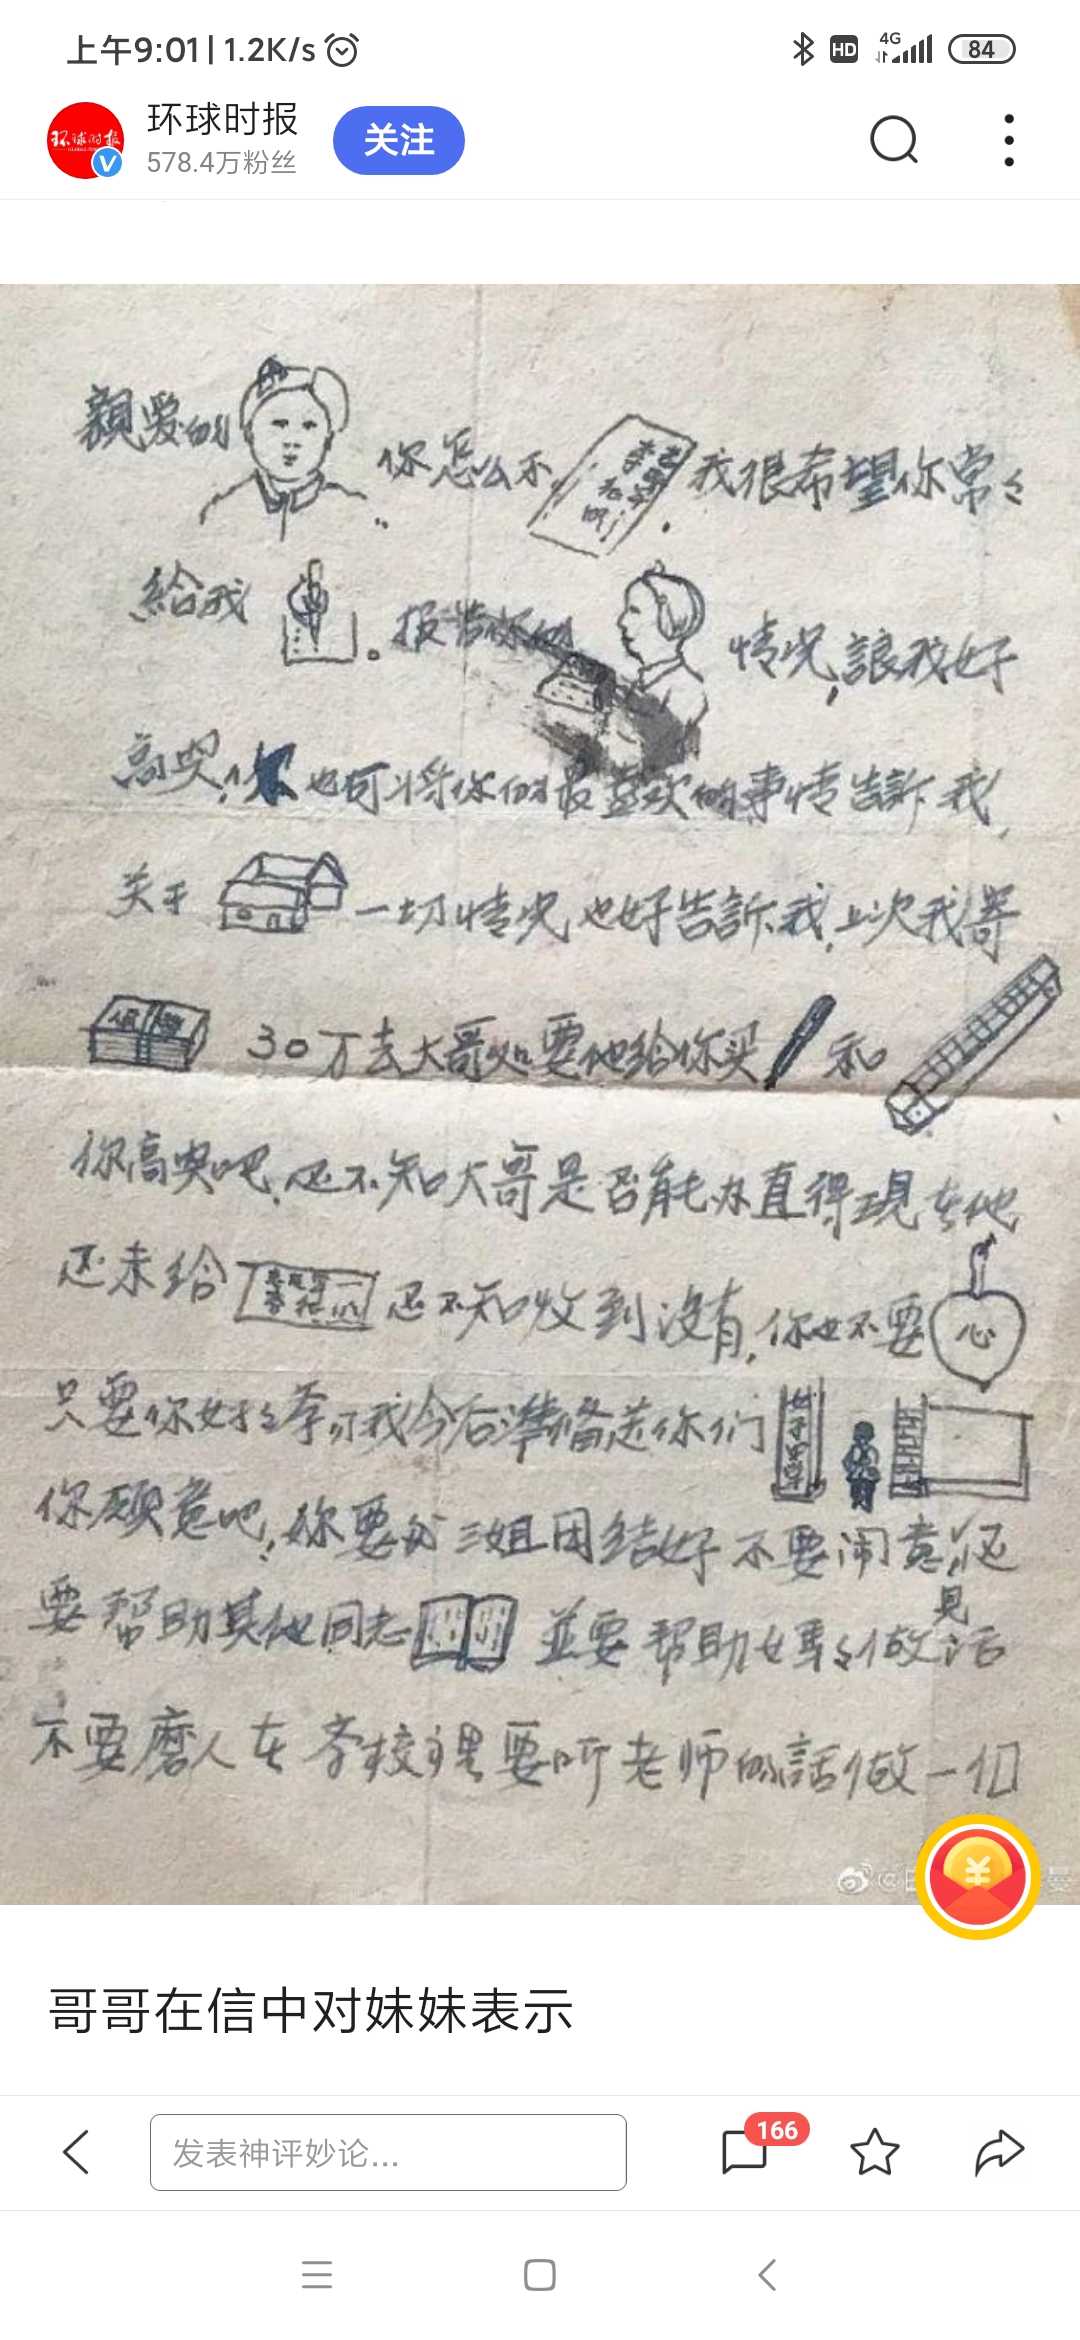 上午9:01 | 1.2K/s
HD 4G 84
环球时报
环球时报
578.4万粉丝
关注
親爱的
你怎么不
我很希望你常々
給我
。报告你的
情况,讓我好
高兴,你也可将你的最喜欢的事情告訴我,
关于
一切情况也好告訴我,上次我寄
30万去大哥处要他给你买
和
你高兴吧,还不知大哥是否能办直得現在他
还未给
还不知收到没有,你也不要
心
只要你好々学习我今后準备送你们
女子中学
你愿意吧,你要和三姐团结好不要闹意見还
要帮助其他同志
並要帮助妈々做活
不要磨人在学校裡要听老师的話做一们
哥哥在信中对妹妹表示
发表神评妙论...
166